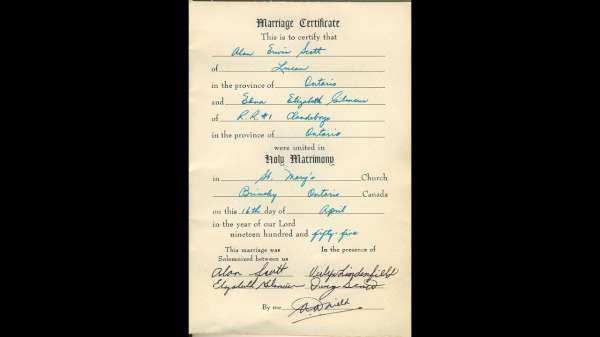 Marriage Certificate
This is to certify that
Alan Erwin Scott
of Lucan
in the province of Ontario
and Edna Elizabeth Gilmour
of R.R.#1 Clandeboye
in the province of Ontario
were united in
Holy Matrimony
in St. Mary's Church
Brinsley Ontario Canada
on this 16th day of April
in the year of our Lord
nineteen hundred and fifty-five
This marriage was In the presence of
Solemnized between us
Alan Scott
Elizabeth Gilmour Scott
By me